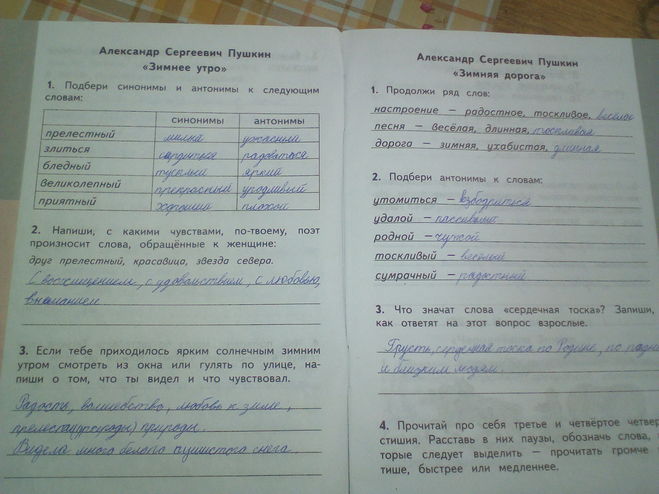 Александр Сергеевич Пушкин
«Зимнее утро»
1. Подбери синонимы и антонимы к следующим
словам:
синонимы антонимы
прелестный милка ужаснила
злиться сердиться радоваться
бледный тусклый яркий
великоленный прекрасный уродливый
приятный хороший плохой
2. Напиши, с какими чувствами, по-твоему, поэт
произносит слова, обращённые к женщине:
друг прелестный, красавица, звезда севера.
С восхищением, с удовольствием, с любовью,
вниманием
3. Если тебе приходилось ярким солнечным зимним
утром смотреть из окна или гулять по улице, на-
пиши о том, что ты видел и что чувствовал.
Радость, волшебство, любовь к зиме,
природы
Видела много белого пушистого снега.
Александр Сергеевич Пушкин
«Зимняя дорога»
1. Продолжи ряд слов:
настроение — радостное, тоскливое, весёлое
песня — весёлая, длинная, тоскливая
дорога — зимняя, ухабистая, длинная
2. Подбери антонимы к словам:
утомиться — взбодриться
удалой — пассивный
родной — чужой
тоскливый — весёлый
сумрачный — радостный
3. Что значат слова «сердечная тоска»? Запиши,
как ответят на этот вопрос взрослые.
Грусть, тоска по Родине, по
и близким людям.
4. Прочитай про себя третье и четвёртое четвер
стишия. Расставь в них паузы, обозначь слова,
торые следует выделить — прочитать громче
тише, быстрее или медленнее.